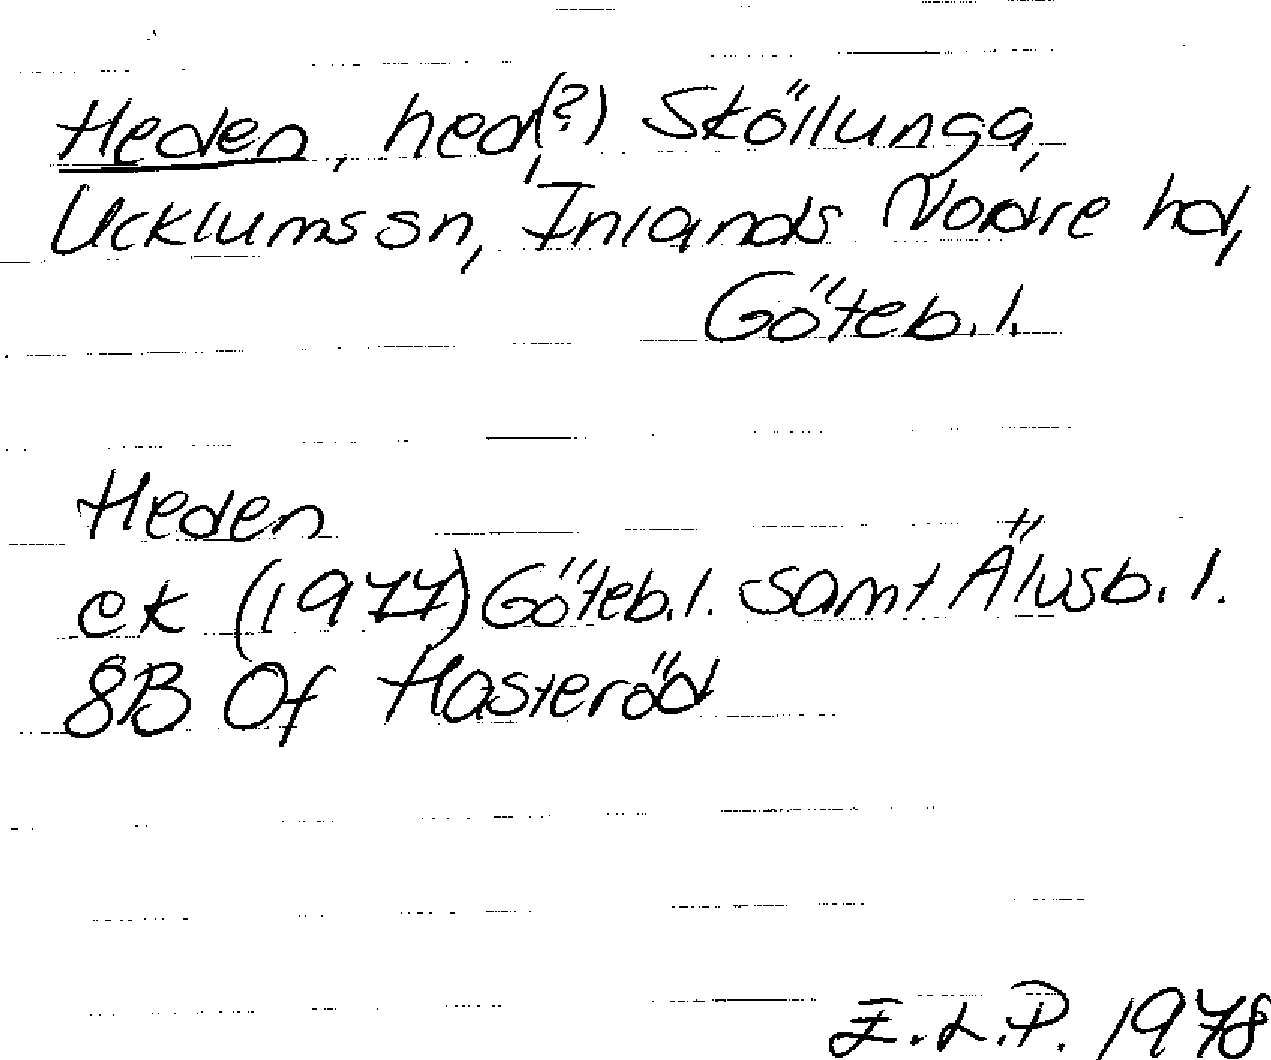 Heden, hed(?), Sköllunga,
Ucklums sn, Inlands Nordre hd,
Göteb. l.
Heden
ek (1977) Göteb. l. samt Älvsb. l.
8B 0f Hasteröd
E.L.P. 1978